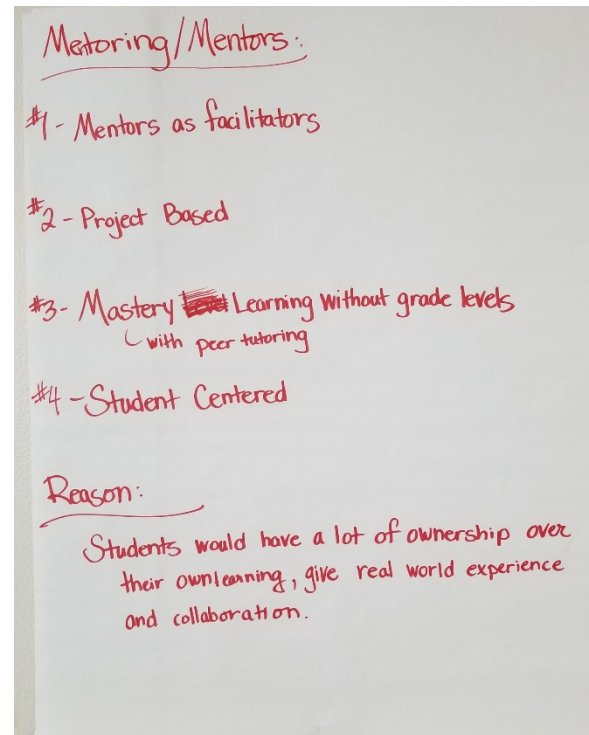 Metoring/Mentors:
#1 - Mentors as facilitators
#2 - Project Based
#3 - Mastery Learning without grade levels
with peer tutoring
#4 - Student Centered
Reason:
Students would have a lot of ownership over
their own learning, give real world experience
and collaboration.